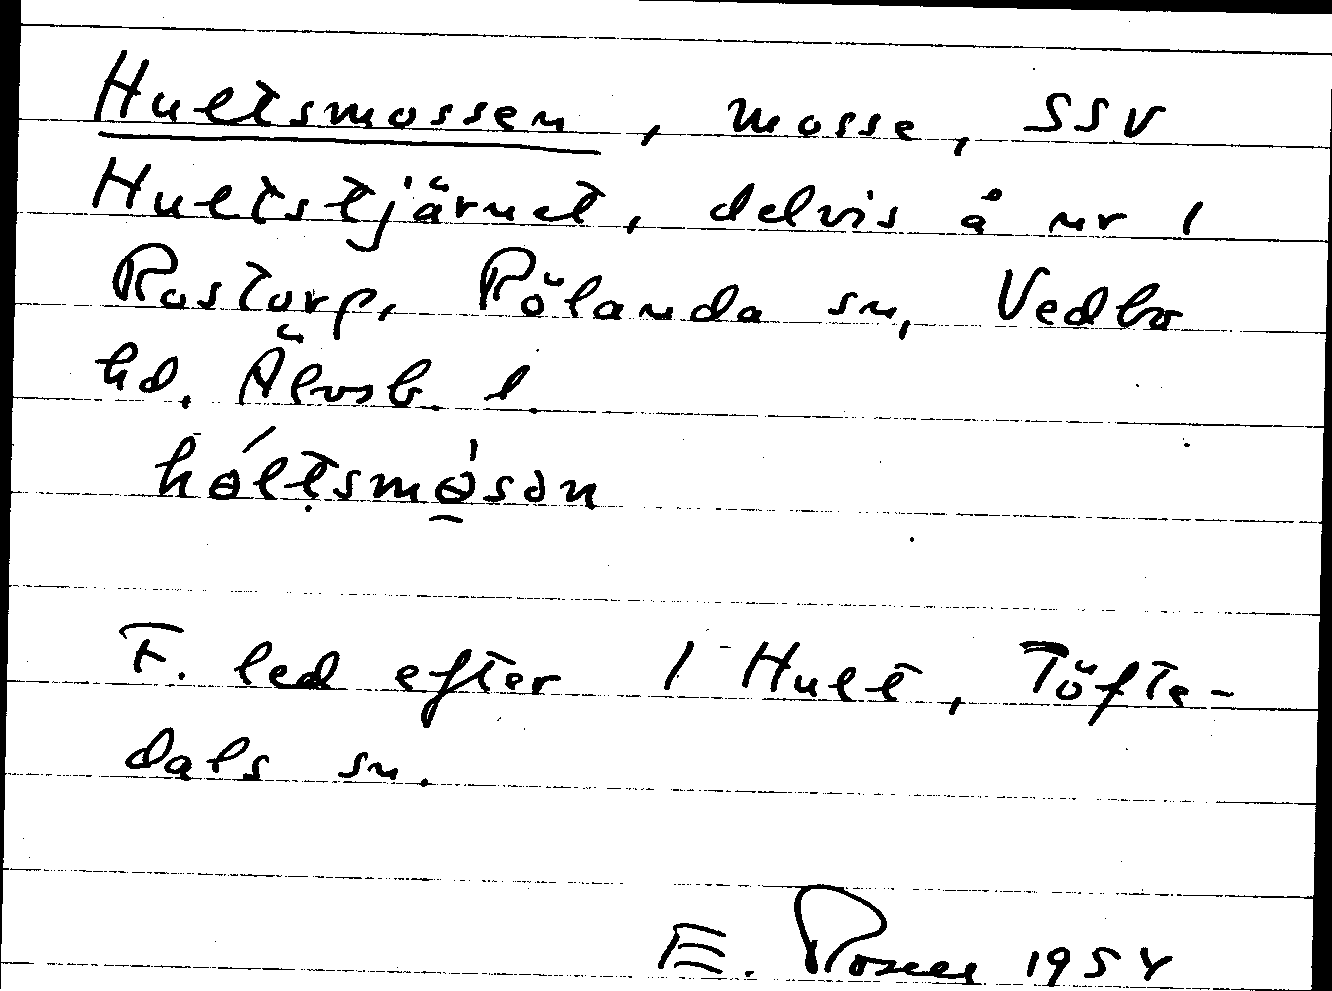 Hultsmossen, mosse, SSV
Hultstjärnet, delvis å nr 1
Rostorp, Rölanda sn, Vedbo
hd. Älvsb. l.
hɵ́ltsmɵ̀sən
F. led efter 1 Hult, Töfte-
dals sn.
E. Rosell 1954